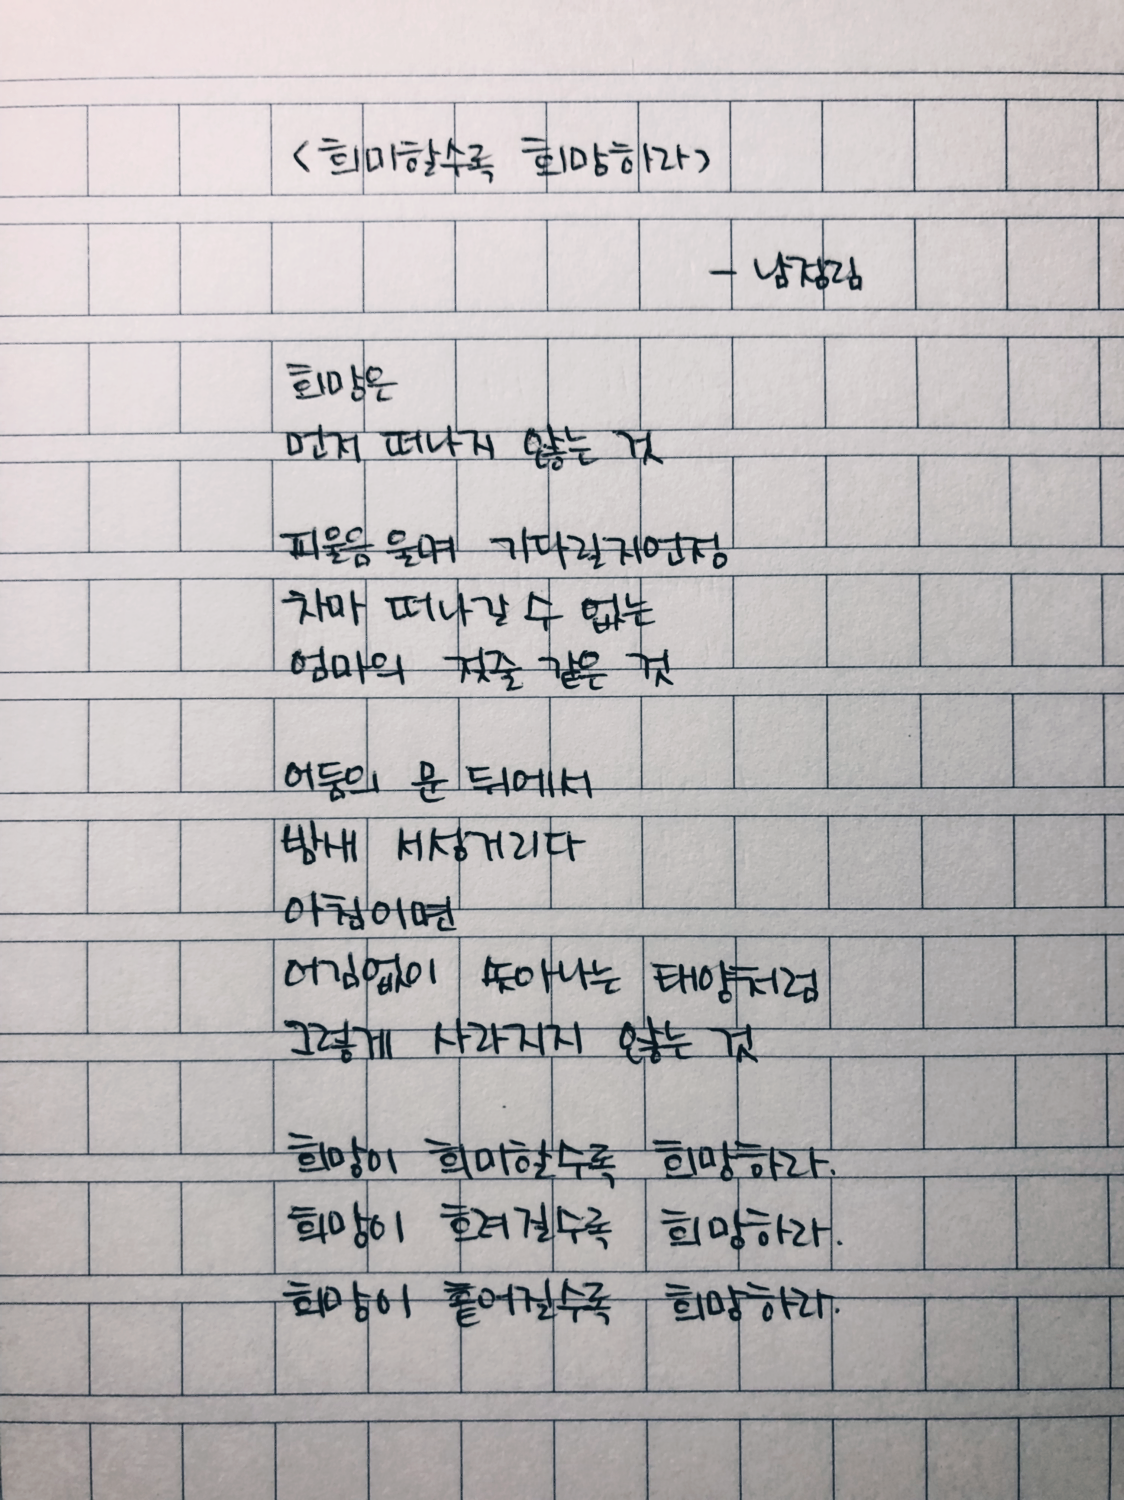 <희미할수록 희망하라>
- 남정림
희망은
먼저 떠나지 않는 것
피울음 울며 기다릴지언정
차마 떠나갈 수 없는
엄마의 젖줄 같은 것
어둠의 문 뒤에서
밤새 서성거리다
아침이면
어김없이 솟아나는 태양처럼
그렇게 사라지지 않는 것
희망이 희미할수록 희망하라.
희망이 흐려질수록 희망하라.
희망이 흩어질수록 희망하라.